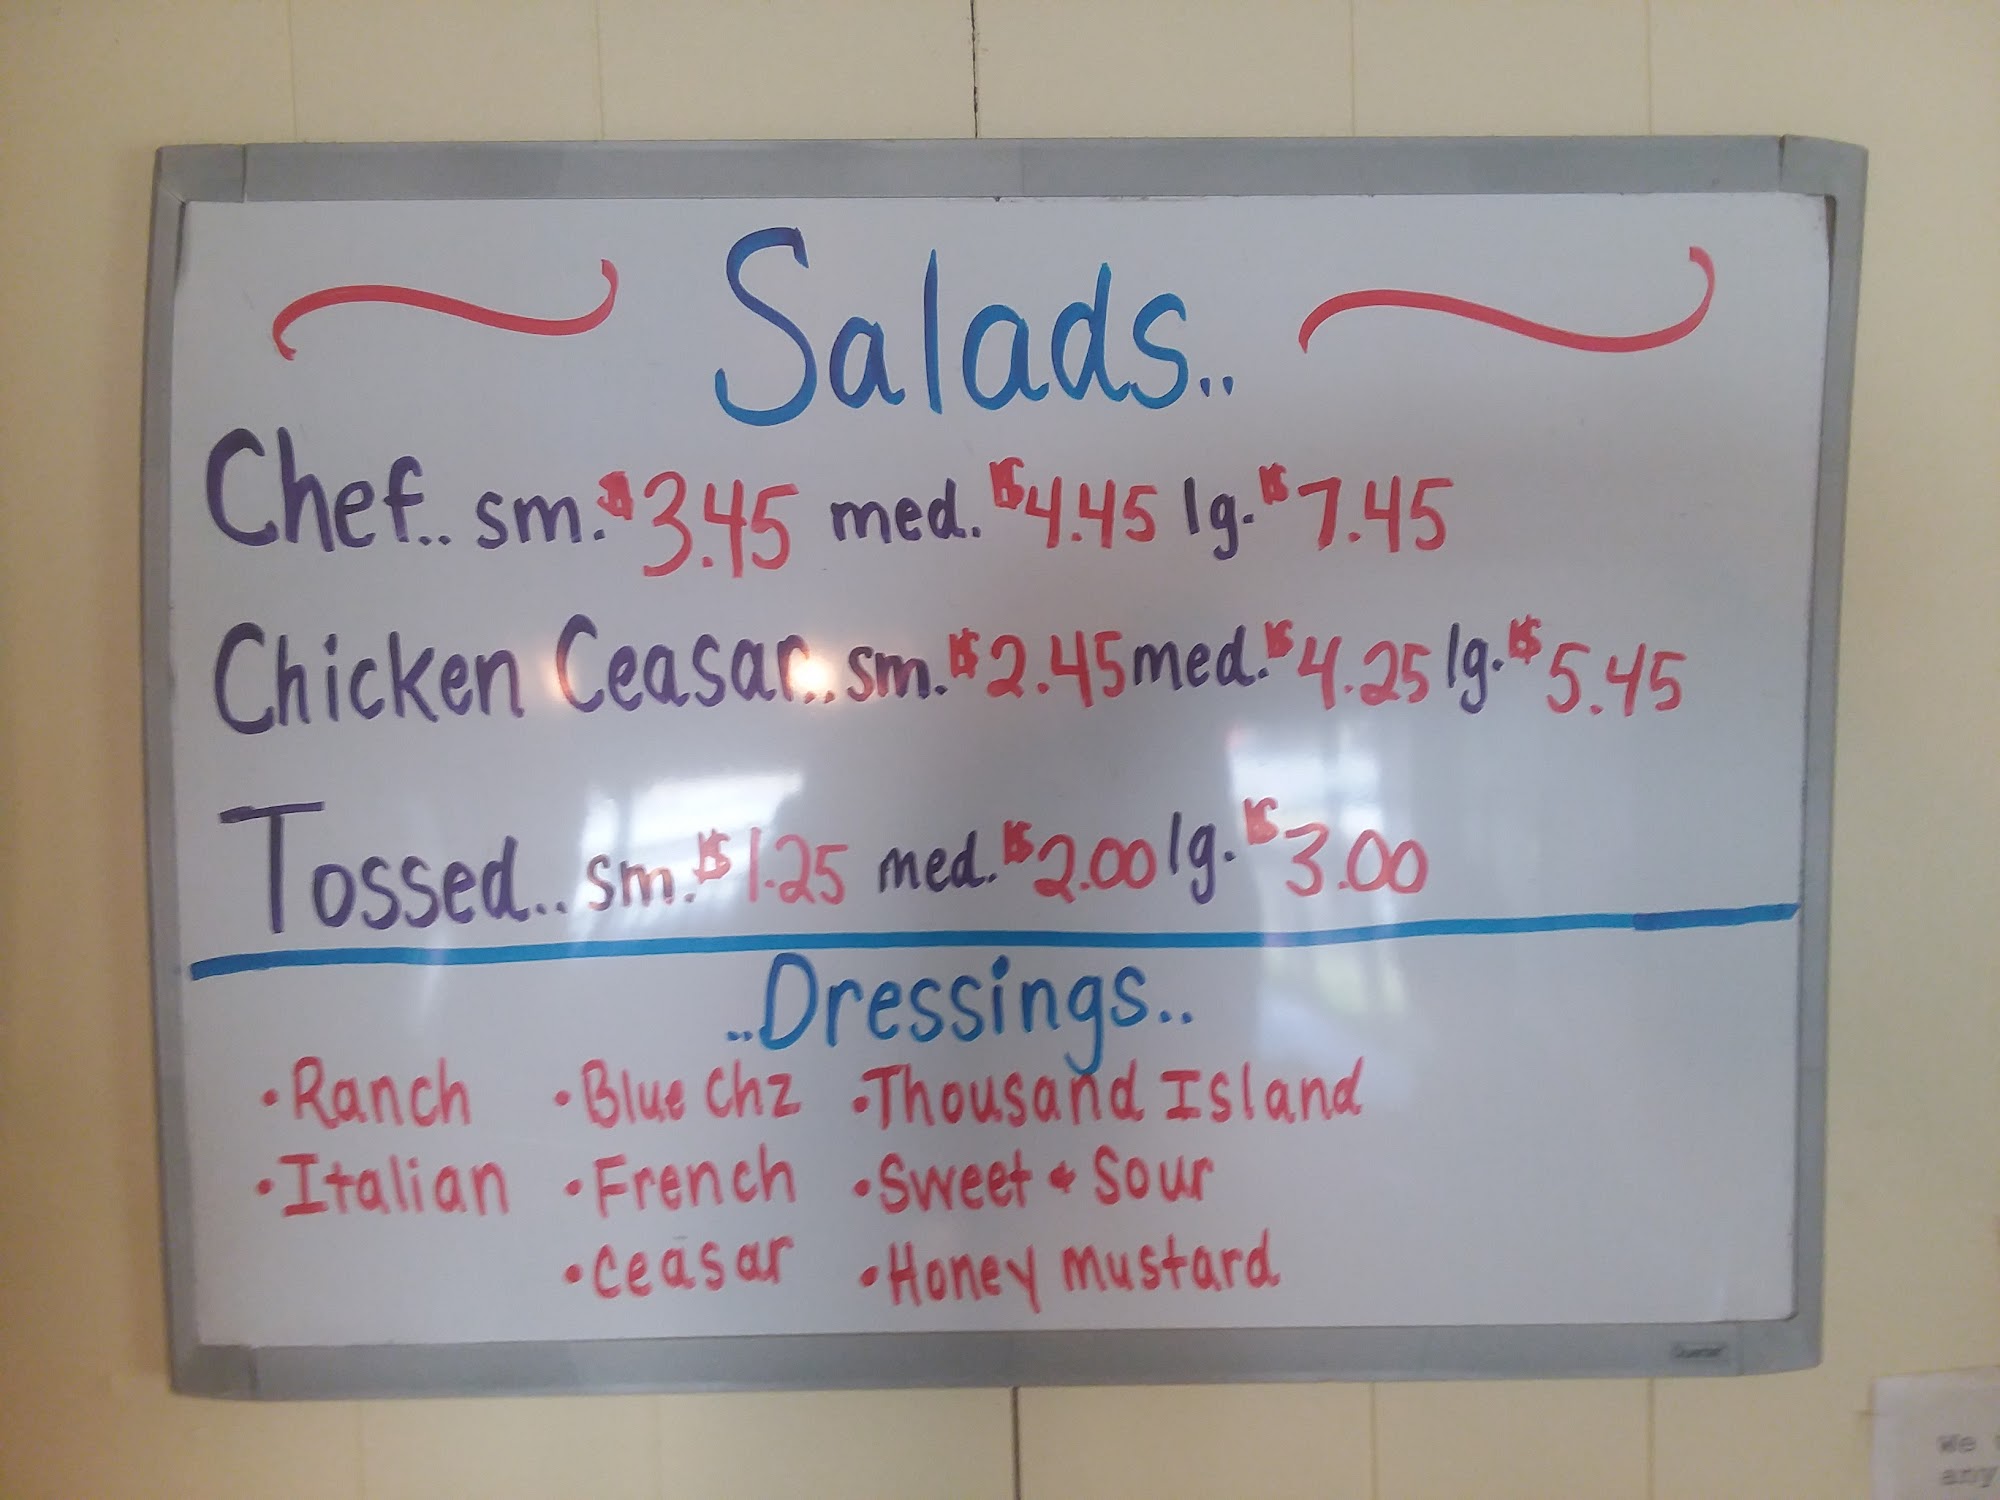 Salads..
Chef.. sm. $3.45 med. $4.45 lg. $7.45
Chicken Ceasar.. sm. $2.45 med. $4.25 lg. $5.45
Tossed.. sm. $1.25 med. $2.00 lg. $3.00
..Dressings..
• Ranch • Blue Chz • Thousand Island
• Italian • French • Sweet & Sour
• Ceasar • Honey Mustard
Quartet
We
any